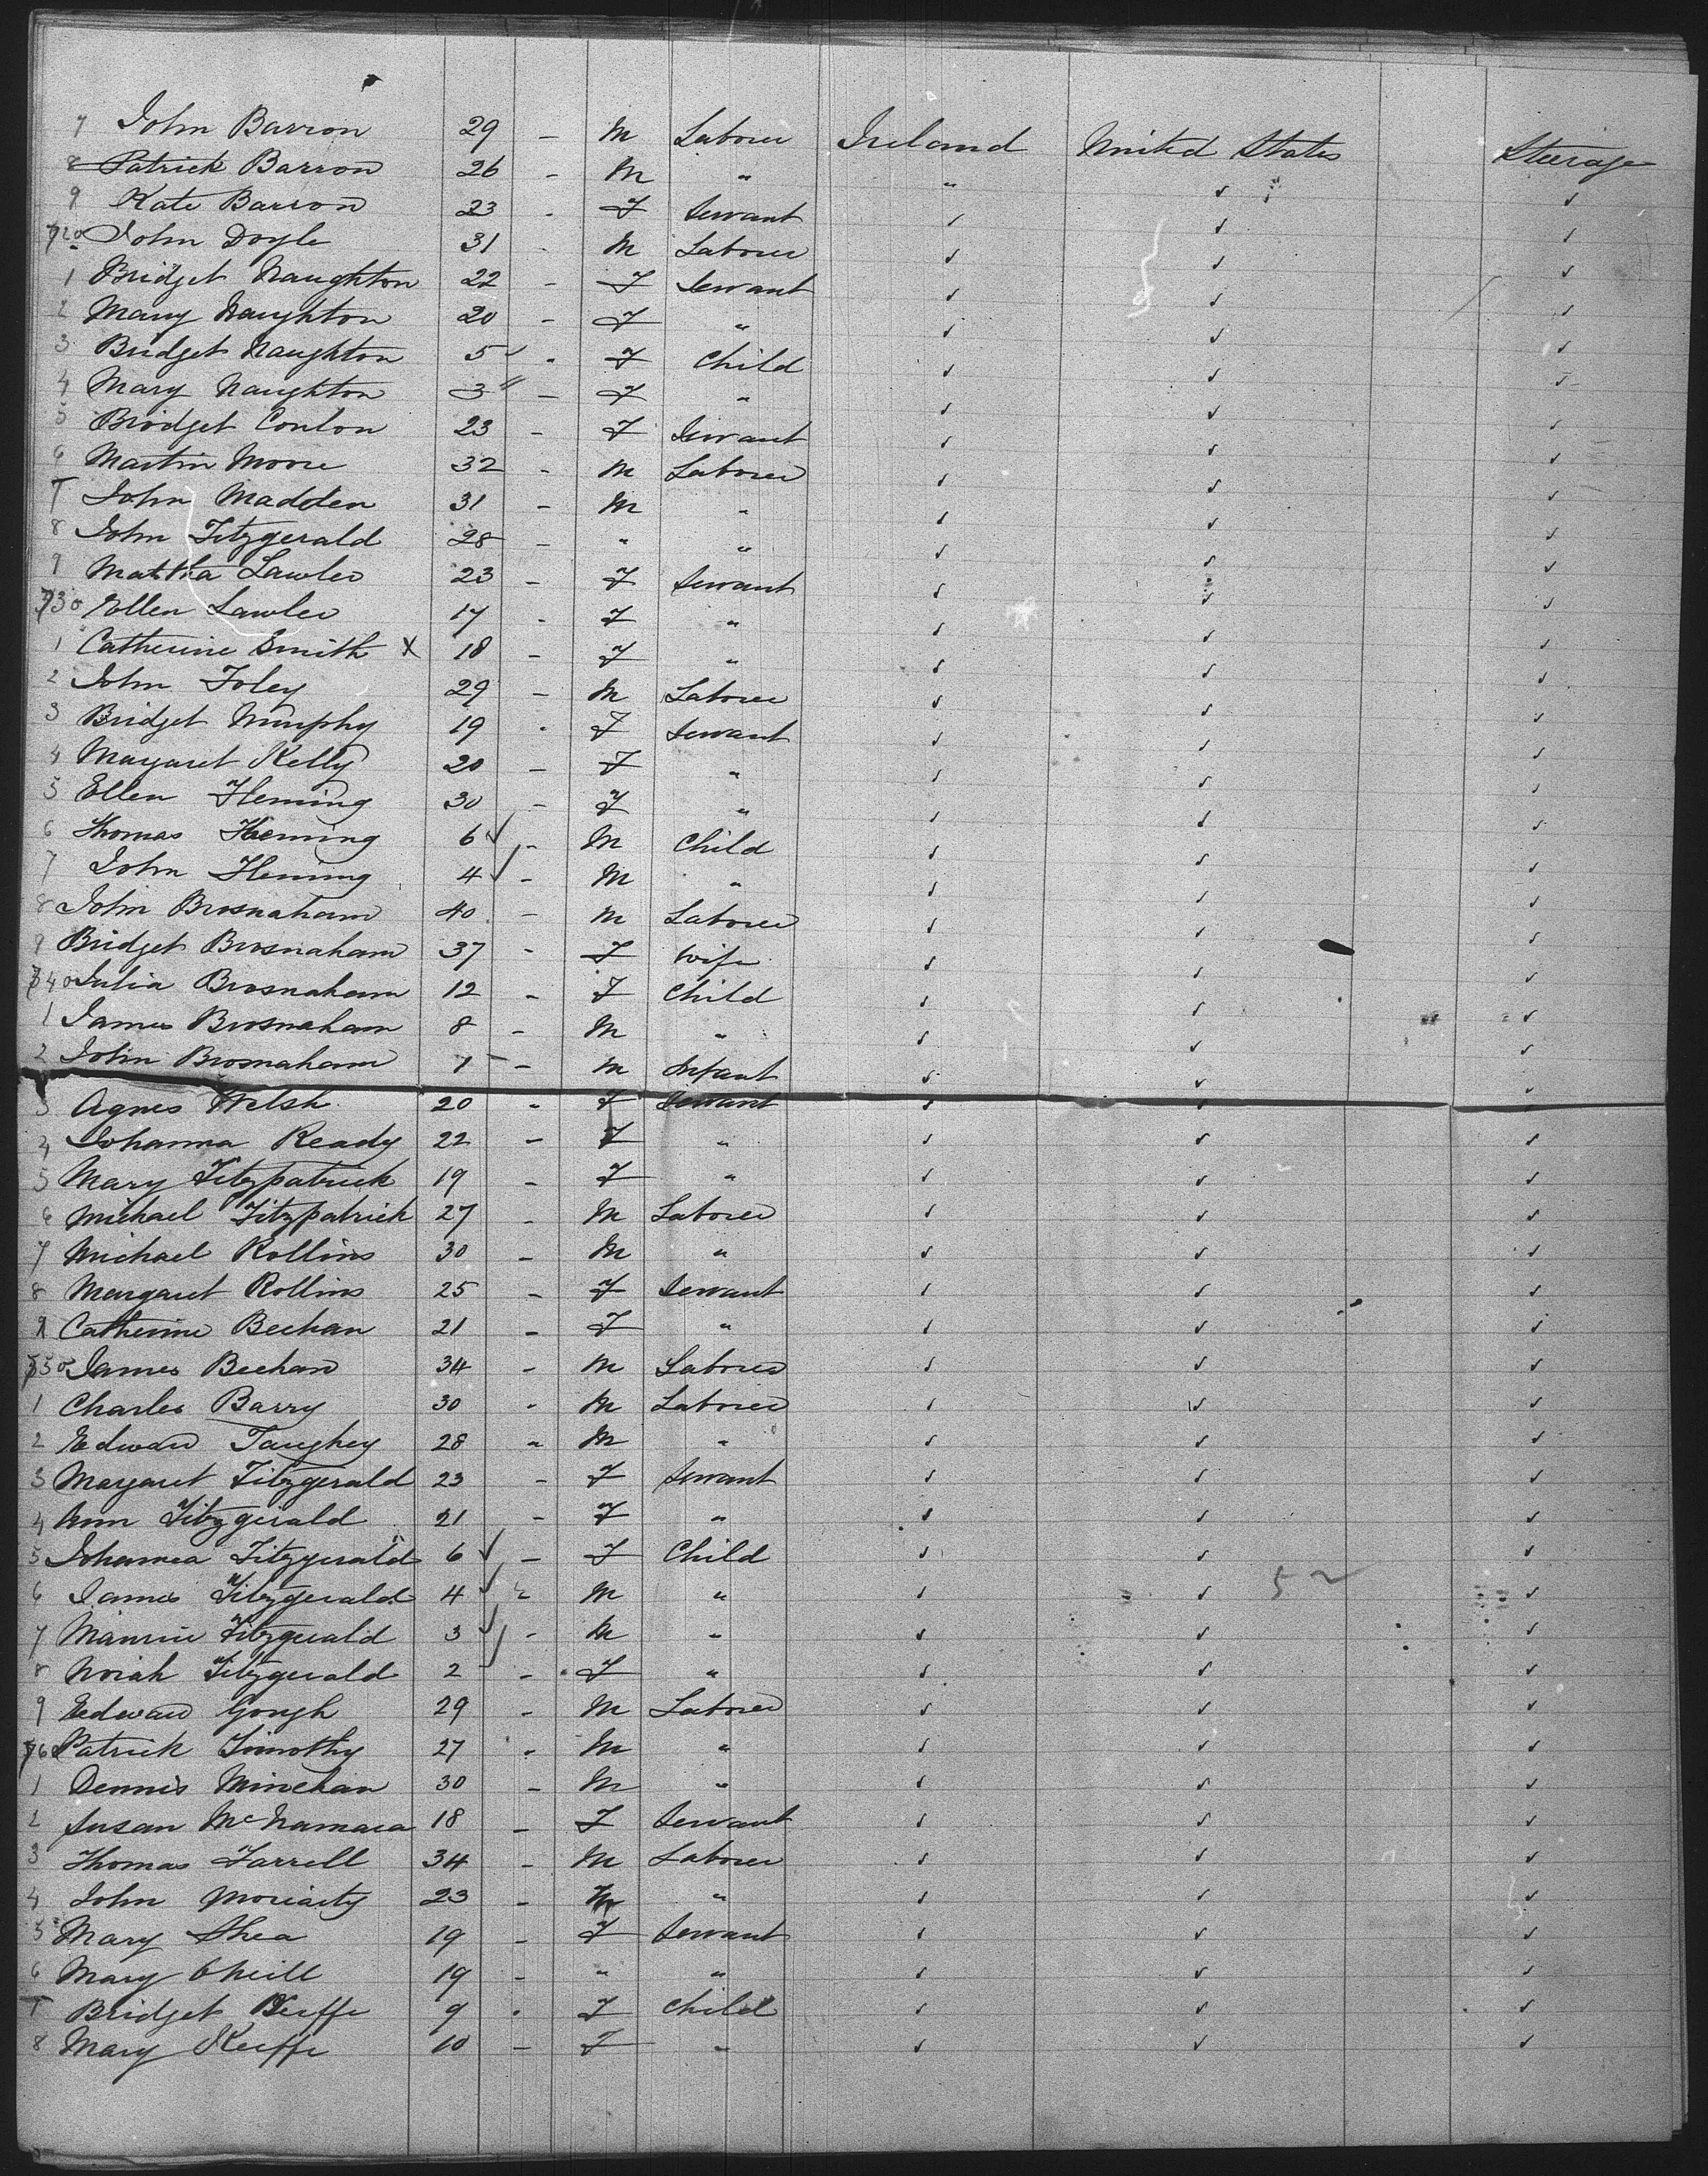 7 John Barron 29 - M Laborer Ireland United States Steerage
8 Patrick Barron 26 - M " "
9 Kate Barron 23 - F Servant
720 John Doyle 31 - M Laborer
1 Bridget Naughton 22 - F Servant
2 Mary Naughton 20 - F "
3 Bridget Naughton 5 - F Child
4 Mary Naughton 3 - F "
5 Bridget Conlon 23 - F Servant
6 Martin Moore 32 - M Laborer
7 John Madden 31 - M "
8 John Fitzgerald 28 - " "
9 Martha Lawler 23 - F Servant
730 Ellen Lawler 17 - F "
1 Catherine Smith X 18 - F "
2 John Foley 29 - M Laborer
3 Bridget Murphy 19 - F Servant
4 Margaret Kelly 20 - F "
5 Ellen Fleming 30 - F "
6 Thomas Fleming 6 - M Child
7 John Fleming 4 - M "
8 John Brosnaham 40 - M Laborer
9 Bridget Brosnaham 37 - F Wife
740 Julia Brosnaham 12 - F Child
1 James Brosnaham 8 - M "
2 John Brosnaham 1 - M Infant
3 Agnes Welsh 20 - F Servant
4 Johanna Ready 22 - F "
5 Mary Fitzpatrick 19 - F "
6 Michael Fitzpatrick 27 - M Laborer
7 Michael Rollins 30 - M "
8 Margaret Rollins 25 - F Servant
9 Catherine Beehan 21 - F "
750 James Beehan 34 - M Laborer
1 Charles Barry 30 - M Laborer
2 Edward Taughey 28 - M "
3 Margaret Fitzgerald 23 - F Servant
4 Ann Fitzgerald 21 - F "
5 Johanna Fitzgerald 6 - F Child
6 James Fitzgerald 4 - M " 52
7 Maurice Fitzgerald 3 - M "
8 Norah Fitzgerald 2 - F "
9 Edward Gough 29 - M Laborer
760 Patrick Timothy 27 - M "
1 Dennis Minehan 30 - M "
2 Susan McNamara 18 - F Servant
3 Thomas Farrell 34 - M Laborer
4 John Moriarty 23 - M "
5 Mary Shea 19 - F Servant
6 Mary ONeill 19 - " "
7 Bridget Keiffe 9 - F Child
8 Mary Keiffe 10 - F "